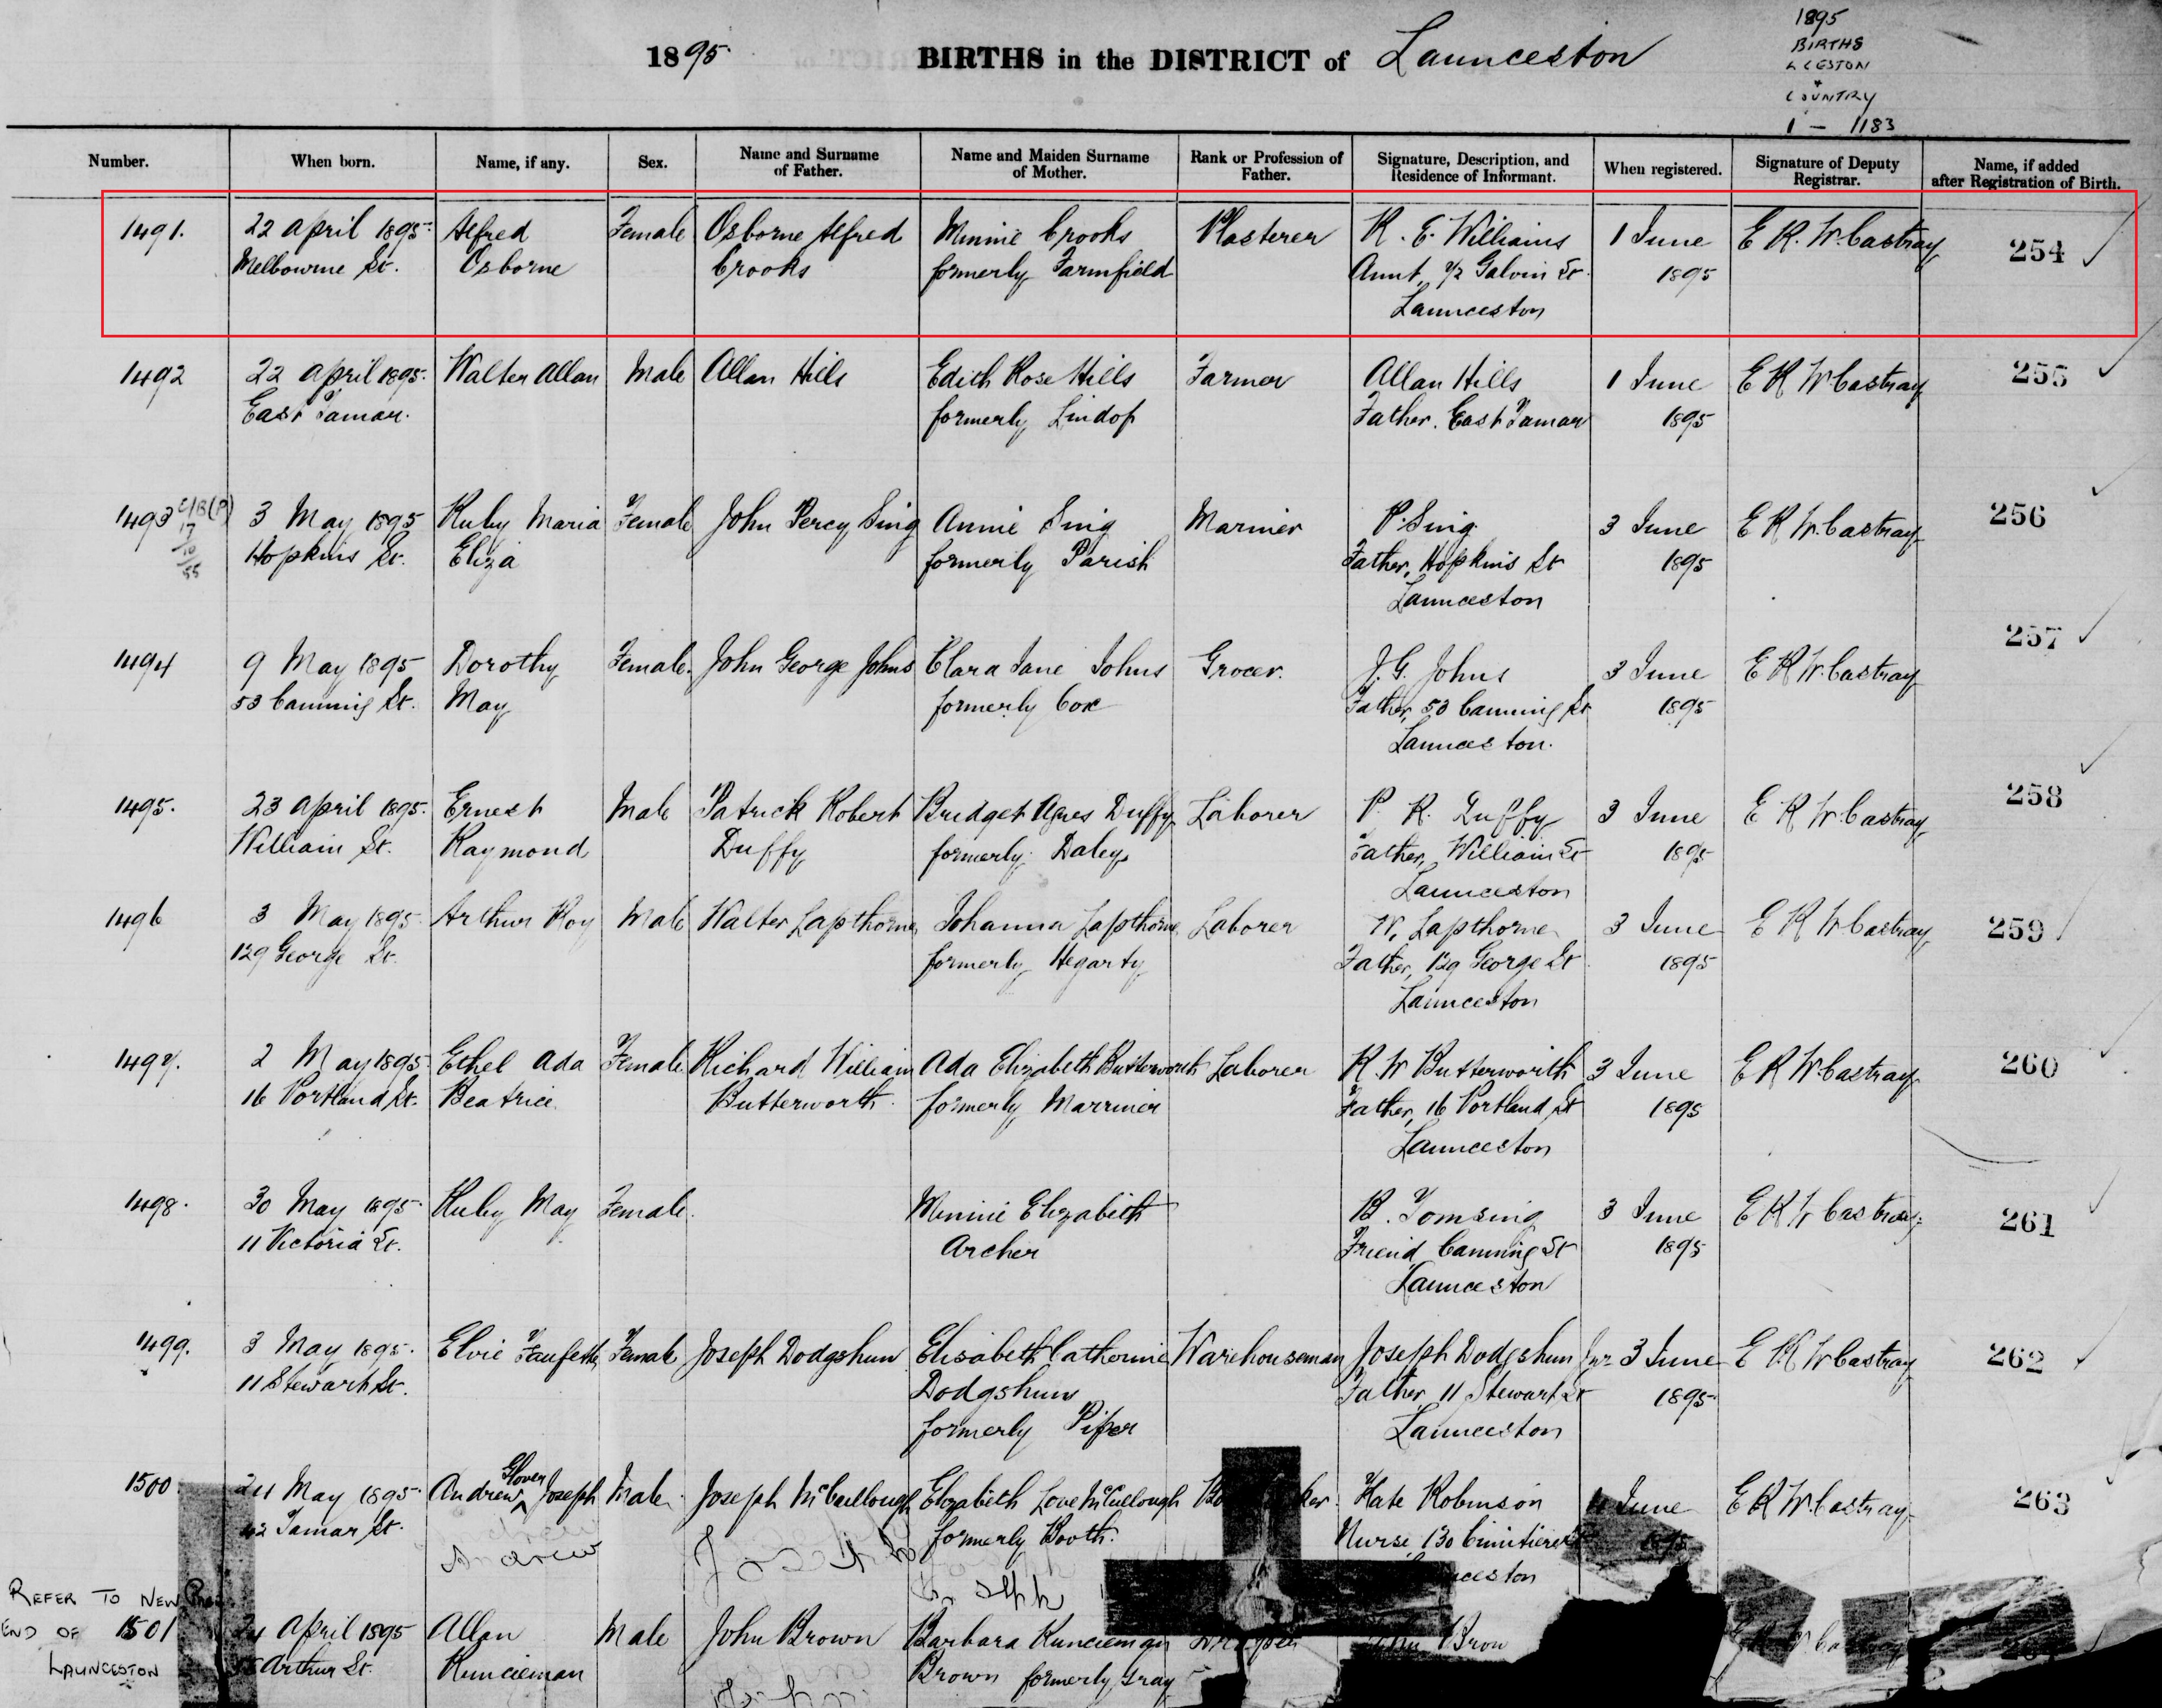 1895
BIRTHS in the DISTRICT of Launceston
1895
BIRTHS
L CESTON
+
COUNTRY
1 — 1183
Number. When born. Name, if any. Sex. Name and Surname of Father. Name and Maiden Surname of Mother. Rank or Profession of Father. Signature, Description, and Residence of Informant. When registered. Signature of Deputy Registrar. Name, if added after Registration of Birth.
1491. 22 April 1895 Alfred Female Osborne Alfred Minnie Crooks Plasterer R. E. Williams 1 June E K. W. Castray 254
Melbourne St. Osborne Crooks formerly Farmfield Aunt, 42 Galvin St 1895
Launceston
1492 22 April 1895. Walter Allan Male Allan Hills Edith Rose Hills Farmer Allan Hills 1 June E K W. Castray 255
East Tamar. formerly Lindop Father. East Tamar 1895
1493 C/B(P) 3 May 1895 Ruby Maria Female John Percy Sing Annie Sing Mariner P. Sing 3 June E K W. Castray 256
17/10/55 Hopkins St. Eliza formerly Parish Father, Hopkins St 1895
Launceston
1494 9 May 1895 Dorothy Female. John George Johns Clara Jane Johns Grocer. J. G. Johns 3 June E K W. Castray 257
53 Canning St. May formerly Cox Father, 53 Canning St 1895
Launceston.
1495. 23 April 1895. Ernest Male Patrick Robert Bridget Agnes Duffy Laborer P. R. Duffy 3 June E K W. Castray 258
William St. Raymond Duffy formerly Daley Father, William St 1895
Launceston
1496 3 May 1895 Arthur Roy Male Walter Lapthorne Johanna Lapthorne Laborer W. Lapthorne 3 June E K W Castray 259
129 George St. formerly Hegarty Father, 129 George St 1895
Launceston
1497. 2 May 1895 Ethel Ada Female Richard William Ada Elizabeth Butterworth Laborer R. W Butterworth 3 June E K W Castray 260
16 Portland St. Beatrice Butterworth formerly Marriner Father, 16 Portland St 1895
Launceston
1498. 30 May 1895 Ruby May Female. Minnie Elizabeth B. Tomsing 3 June E K W Castray 261
11 Victoria St. Archer Friend, Canning St 1895
Launceston
1499. 3 May 1895. Elvie Female Joseph Dodgshun Elisabeth Catherine Warehouseman Joseph Dodgshun Jnr 3 June E K W Castray 262
11 Stewart St. Dodgshun Father, 11 Stewart St 1895
formerly Piper Launceston
1500 24 May 1895 Andrew Glover Joseph Male Joseph McCullough Elizabeth Love McCullough Kate Robinson 4 June E K W. Castray 263
42 Tamar St. formerly Booth. Nurse, 130 Cimitiere St 1895
Andrew Joseph
REFER TO NEW
END OF 1501 24 April 1895 Allan Male John Brown Barbara Runcieman
LAUNCESTON Arthur St. Runcieman Brown formerly Gray